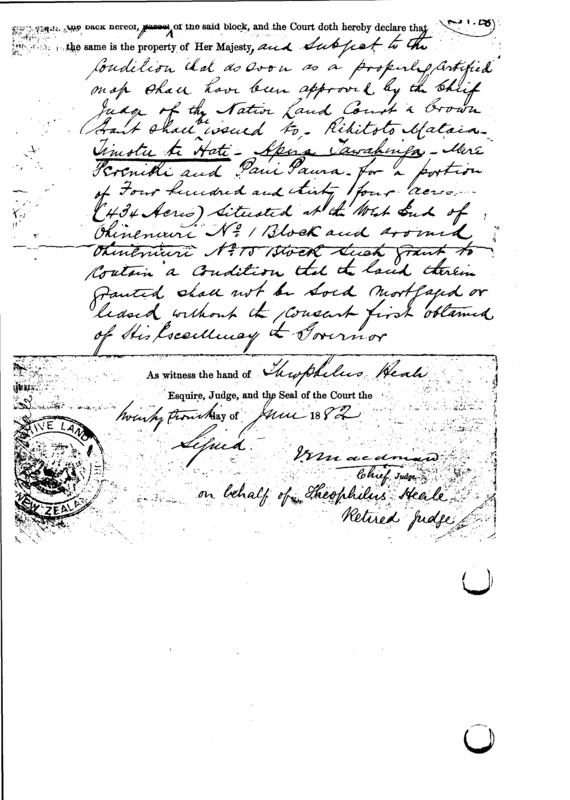 the back hereof, of the said block, and the Court doth hereby declare that
the same is the property of Her Majesty, and Subject to the
Condition that as soon as a properly Certified
map shall have been approved by the Chief
Judge of the Native Land Court a Crown
Grant shall be issued to - Rihitoto Mataia -
Timotu te Hati - Apera - Mere
and Pani Paura - for a portion
of Four hundred and thirty four acres
(434 Acres) Situated at the West End of
Ohinemuri No 1 Block and
Ohinemuri No Block Such grant to
Contain a Condition that the land therein
granted shall not be Sold Mortgaged or
leased without the Consent first obtained
of His Excellency the Governor
As witness the hand of Theophilus Heale
Esquire, Judge, and the Seal of the Court the
day of June 1882
Signed.
Chief Judge
on behalf of Theophilus Heale
Retired Judge
NATIVE LAND
NEW ZEALAND